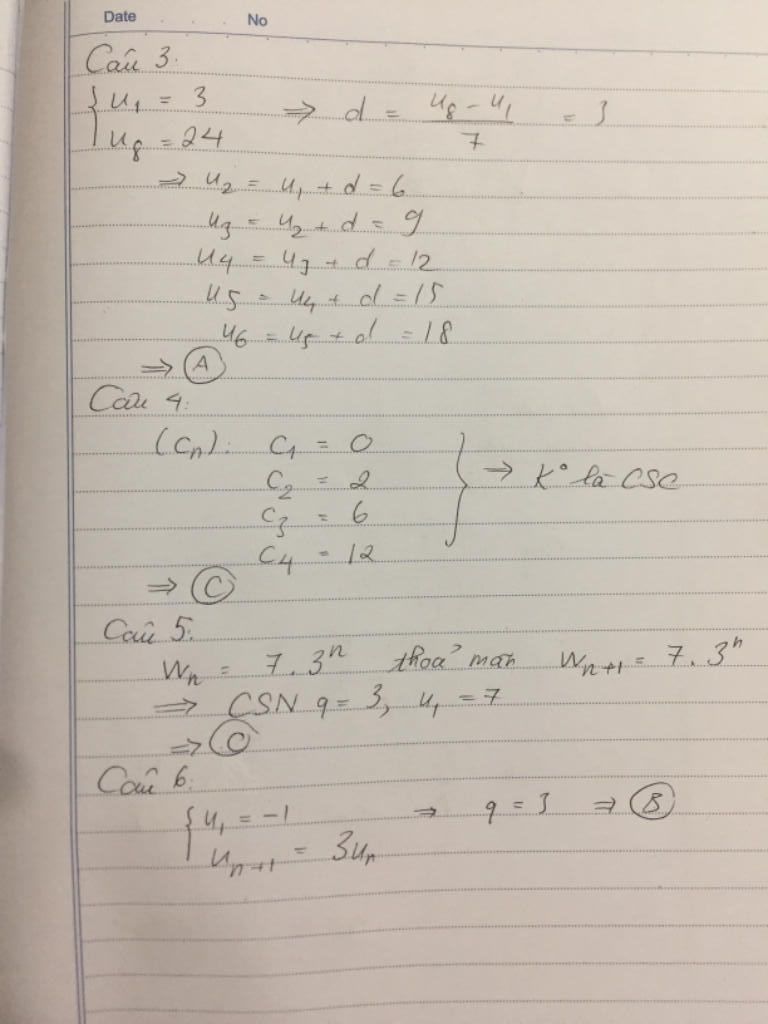 Date No
Câu 3.
{ u₁ = 3 ⇒ d = (u₈ - u₁)/7 = 3
u₈ = 24
⇒ u₂ = u₁ + d = 6
u₃ = u₂ + d = 9
u₄ = u₃ + d = 12
u₅ = u₄ + d = 15
u₆ = u₅ + d = 18
⇒ A
Câu 4:
(Cₙ): C₁ = 0
C₂ = 2 } ⇒ K° là CSC
C₃ = 6
C₄ = 12
⇒ C
Câu 5:
Wₙ = 7.3ⁿ thoả mãn Wₙ₊₁ = 7.3ⁿ
⇒ CSN q = 3, u₁ = 7
⇒ C
Câu 6:
{ u₁ = -1 ⇒ q = 3 ⇒ B
uₙ₊₁ = 3uₙ